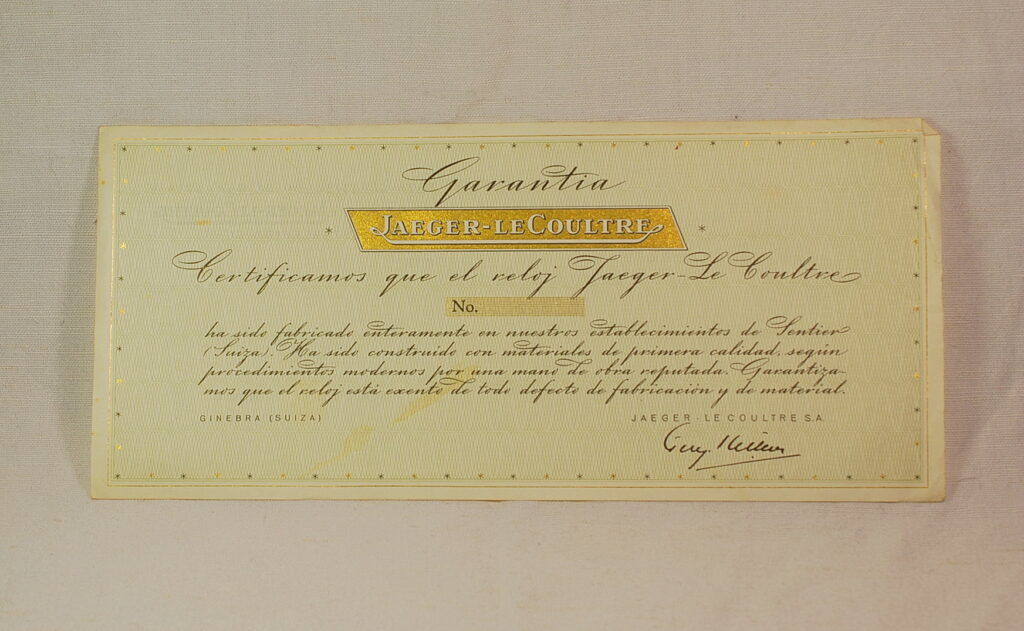 Garantia
JAEGER-LECOULTRE
Certificamos que el reloj Jaeger-Le Coultre
No.
ha sido fabricado enteramente en nuestros establecimientos de Sentier
(Suiza). Ha sido construido con materiales de primera calidad, según
procedimientos modernos por una mano de obra reputada. Garantiza-
mos que el reloj está exento de todo defecto de fabricación y de material.
GINEBRA (SUIZA)
JAEGER-LECOULTRE S.A.